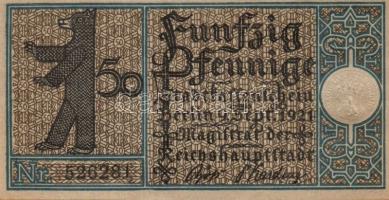 Funfzig
50
Pfennige
Stadtkassenschein
Berlin, 9. Sept. 1921
Magistrat der
Reichshauptstadt
Nr. 526281